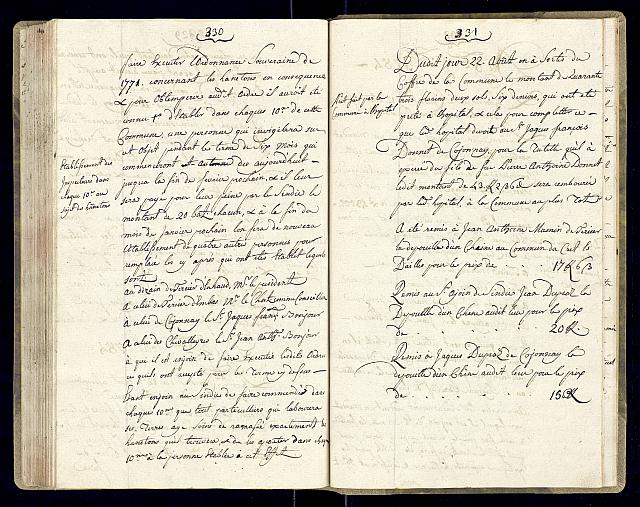 330
faire executer l'ordonnance Souveraine de
1771. concernant les hanetons en consequence
& pour Obtemperer audit Ordre il auroit ete
convenu d'etablir dans chaques 10ne de cette
Commune, une personne qui invigilera sur
cet Objet pendant le terme de Six mois qui
commenceront des aujourdhuit
jusqua la fin de fevrier prochain, & il leur
sera payé pour leur peine par le Sindic le
montant de 20 bat. chacun, & a la fin du
mois de Janvier prochain l'on fera de nouveau
établissement de quatre autres personnes pour
remplacer les cy après qui ont étés établit lequels
sonts
Etablissement des
Inspecteurs dans
chaque 10ne au
sujet des hanetons
au dizain de
a celui de
a celui de Cojonnay le Sr. Jaques Bonjour
a celui des Chevalleyres le Sr. Jean Bonjour
a qui il est enjoin de faire executer ledits Ordre
ce quils ont accepté pour le terme cy dessus
Etant enjoin au Sindic de faire commender dans
chaque 10ne que tout particulliers qui labourera
ses Terres aye soin de ramassé exactement les
hanetons quil trouvera, & de les aporter dans chaque
10ne a la personne établie à cet Effet
331
Dudit jour 22. Aout on a Sortis du
Coffre de la Commune le montant de quarante
trois florins deux sols, six deniers, qui ont été
preté a l'hopital, & cela pour completter ce
que led. hopital devoit au Sr. Jaques françois
Donnet de Cojonnay, pour la dubite quil a
epouse du fils de feu Pierre Anthoine Donnet
ledit montant de 43 2 6 sera rembourcé
par led. hopital, à la Commune au plus Tôt
Pret fait par la
Commune a l'hopital
A eté remis à Jean Anthoine Mamin de
la depouille d'un Chêne au Commun du Crêt
Dailles pour le prix de 17 6 3
Remis au Sr. ajoin de Sindic Jean Dupraz la
Depouille d'un Chêne audit lieu pour le prix
de 20
Remis à Jaques Dupraz de Cojonnay la
depouille d'un Chêne audit lieu pour le prix
de 15